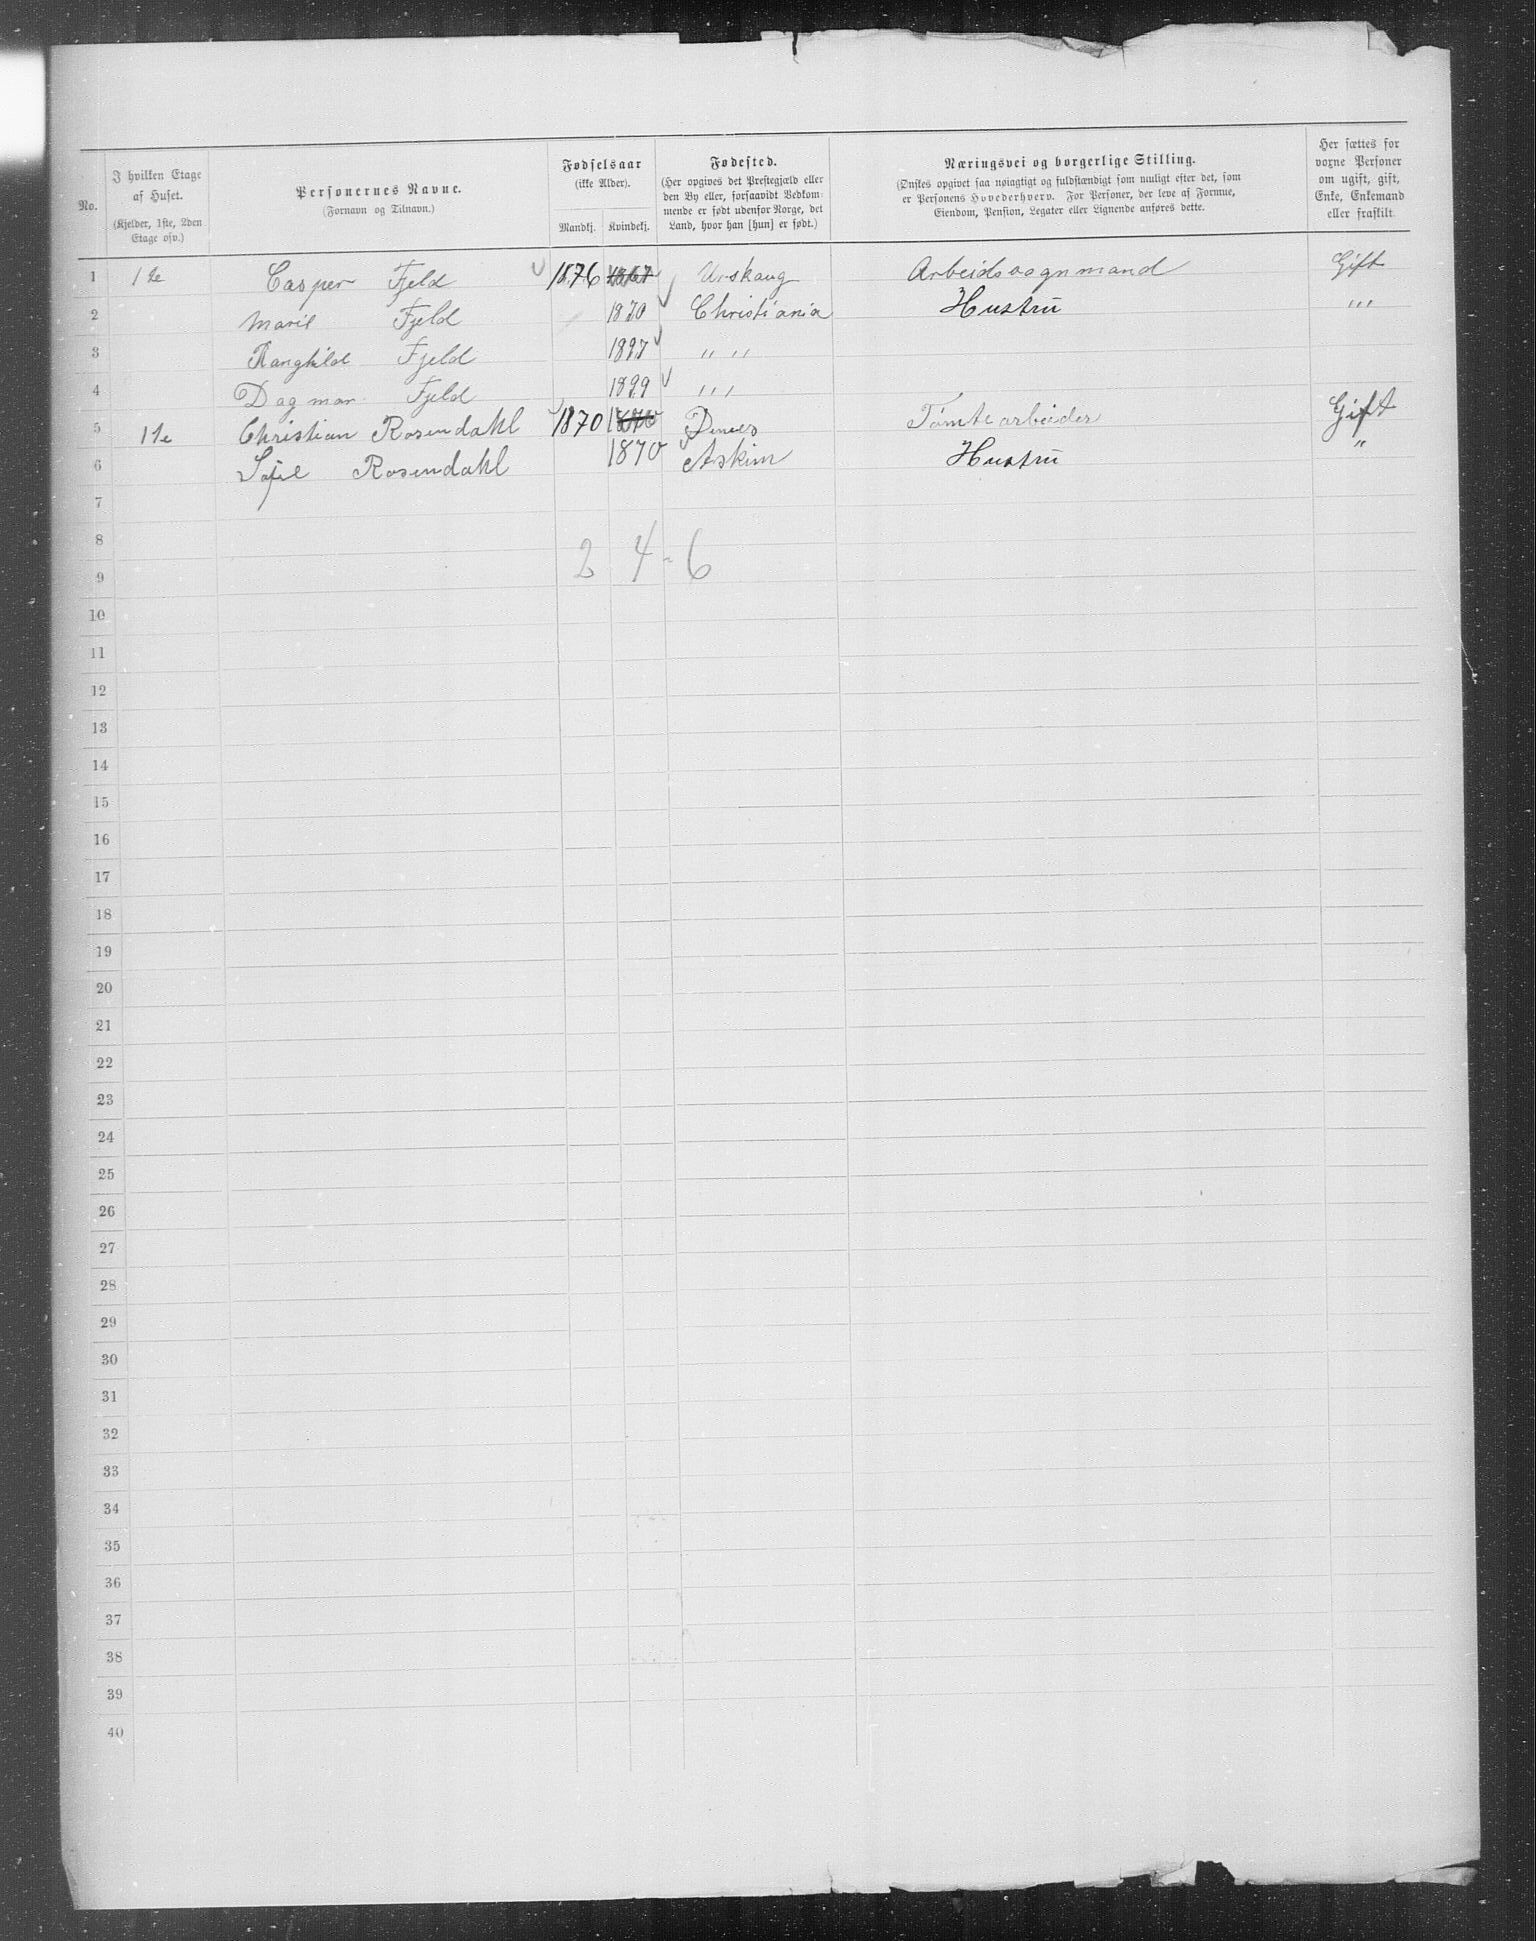 No.
I hvilken Etage af Huset.
(Kjelder, 1ste, 2den Etage osv.)
Personernes Navne.
(Fornavn og Tilnavn.)
Fødselsaar
(ikke Alder).
Mandkj. Kvindekj.
Fødested.
(Her opgives det Prestegjæld eller den By eller, forsaavidt Vedkommende er født udenfor Norge, det Land, hvor han [hun] er født.)
Næringsvei og borgerlige Stilling.
(Ønskes opgivet saa nøiagtigt og fuldstændigt som muligt efter det, som er Personens Hovederhverv. For Personer, der leve af Formue, Eiendom, Pension, Legater eller Lignende anføres dette.
Her sættes for voxne Personer om ugift, gift, Enke, Enkemand eller fraskilt.
1 1ste Casper Fjeld 1876 Urskaug Arbeidsvognmand Gift
2 Marie Fjeld 1870 Christiania Hustru ,,,
3 Ranghild Fjeld 1897 ,, ,,
4 Dagmar Fjeld 1899 ,,,
5 1ste Christian Rosendahl 1870 1870 Tømtearbeider Gift
6 Sofie Rosendahl 1870 Askim Hustru ,,
7
8
2 4 - 6
9
10
11
12
13
14
15
16
17
18
19
20
21
22
23
24
25
26
27
28
29
30
31
32
33
34
35
36
37
38
39
40